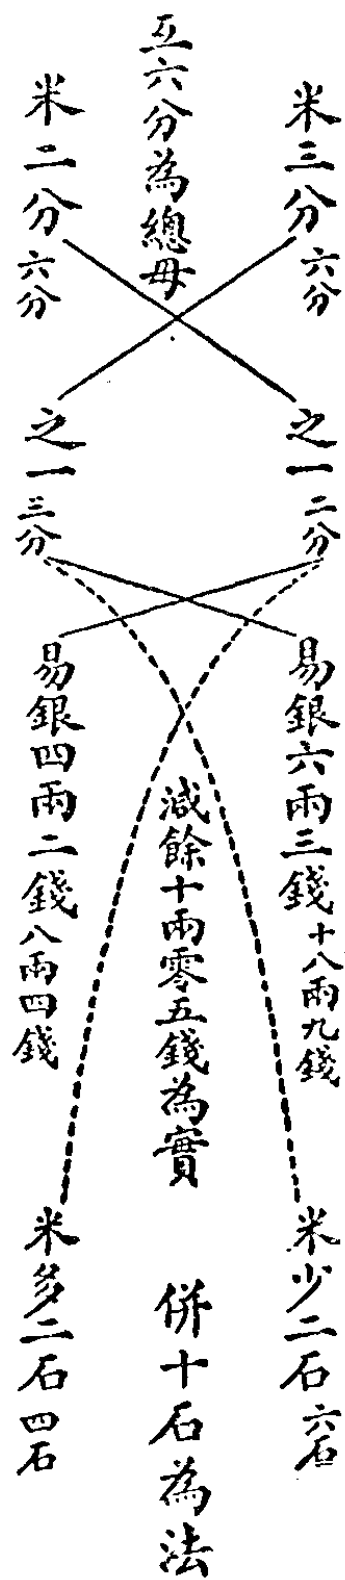 米三分六分
之一二分
易銀六兩三錢十八兩九錢
米少二石六石
互六分為總母
減餘十兩零五錢為實
併十石為法
米二分六分
之一三分
易銀四兩二錢八兩四錢
米多二石四石